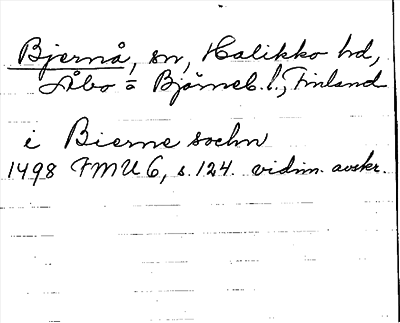 Bjernå, sn, Halikko hd,
Åbo = Björneb. l., Finland
i Bierne sochn
1498 FMU 6, s. 124. vidim. avskr.